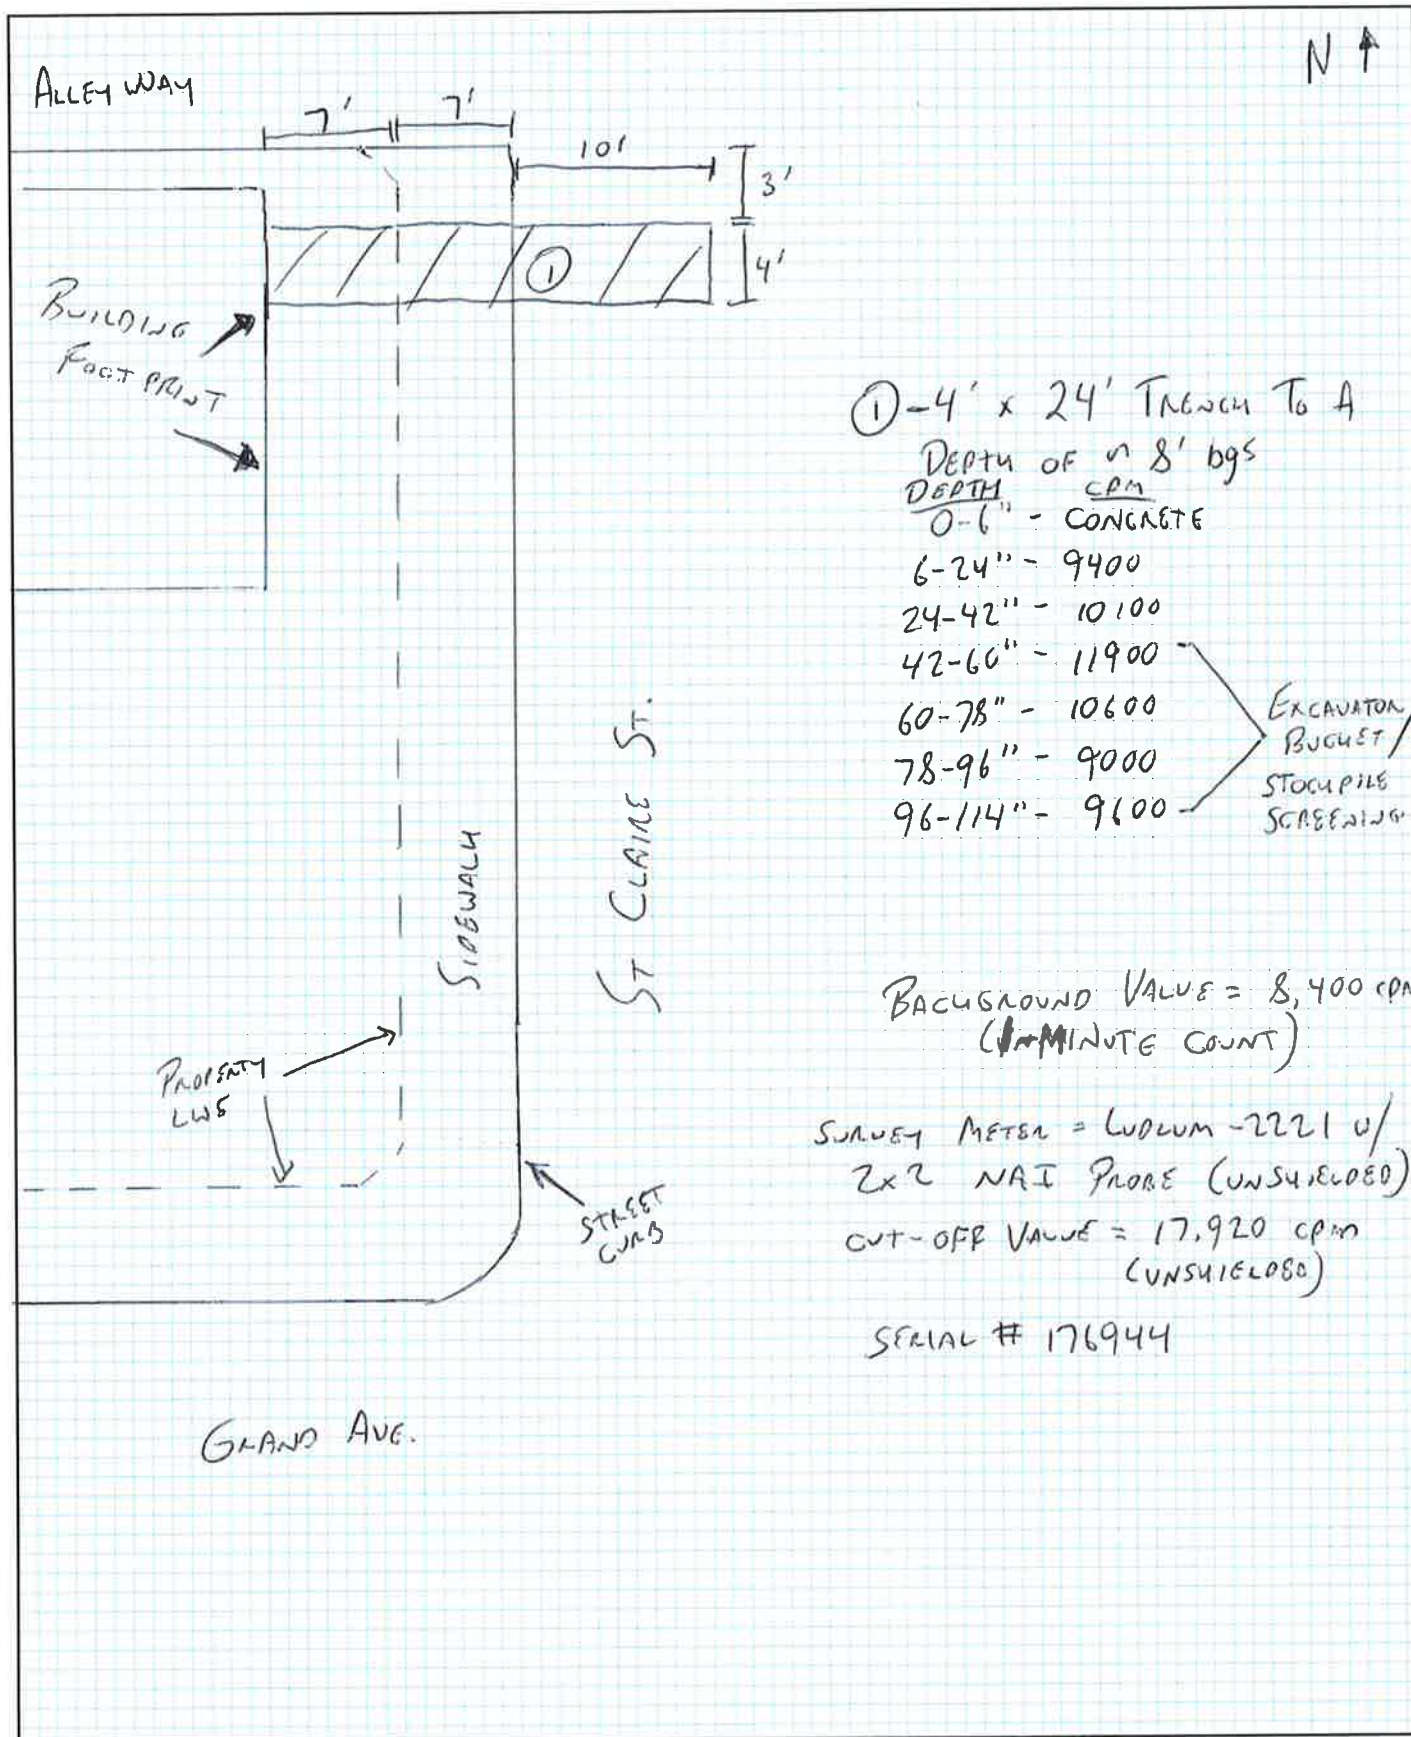 N ↑
ALLEY WAY
7' 7'
10'
3'
4'
①
BUILDING
FOOTPRINT
① - 4' x 24' TRENCH TO A
DEPTH OF ~ 8' bgs
DEPTH CPM
0-6" - CONCRETE
6-24" - 9400
24-42" - 10100
42-60" - 11900
60-78" - 10600
78-96" - 9000
96-114" - 9600
EXCAVATOR
BUCKET/
STOCKPILE
SCREENING
SIDEWALK
ST CLAIRE ST.
BACKGROUND VALUE = 8,400 cpm
MINUTE COUNT)
PROPERTY
LINE
SURVEY METER = LUDLUM-2221 w/
2x2 NAI PROBE (UNSHIELDED)
STREET
CURB
CUT-OFF VALUE = 17,920 cpm
(UNSHIELDED)
SERIAL # 176944
GRAND AVE.